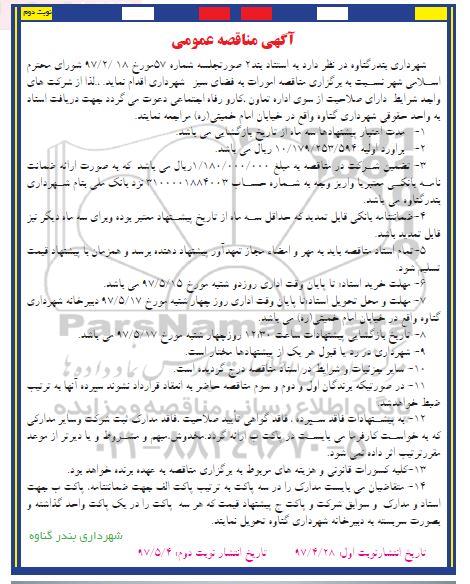 نوبت دوم
آگهی مناقصه عمومی
شهرداری بندرگناوه در نظر دارد به استناد بند۲ صورتجلسه شماره ۵۷مورخ ۹۷/۲/۱۸ شورای محترم
اسلامی شهر نسبت به برگزاری مناقصه امورات به فضای سبز شهرداری اقدام نماید. ..لذا از شرکت های
واجد شرایط دارای صلاحیت از سوی اداره تعاون ،کارو رفاه اجتماعی دعوت می گردد جهت دریافت اسناد
به واحد حقوقی شهرداری گناوه واقع در خیابان امام خمینی(ره) مراجعه نمایند.
۱- مدت اعتبار پیشنهادها سه ماه از تاریخ بازگشایی می باشد.
۲- برآورد اولیه ۱۰/۱۷۹/۲۵۳/۵۹۴ ریال می باشد.
۳- تضمین شرکت در مناقصه به مبلغ ۱/۱۸۰/۰۰۰/۰۰۰ریال می باشد که به صورت ارائه ضمانت
نامه بانکی معتبریا واریز وجه به شماره حساب ۳۱۰۰۰۰۱۸۸۴۰۰۳ نزد بانک ملی بنام شهرداری
بندرگناوه می باشد.
۴-ضمانتنامه بانکی قابل تمدید که حداقل سه ماه از تاریخ پیشنهاد معتبر بوده وبرای سه ماه دیگر نیز
قابل تمدید باشد.
۵-تمام اسناد مناقصه باید به مهر و امضاء مجاز تعهدآور پیشنهاد دهنده برسد و همزمان با پیشنهاد قیمت
تسلیم شود.
۶- مهلت خرید اسناد: تا پایان وقت اداری روزدو شنبه مورخ ۹۷/۵/۱۵ می باشد.
۷- مهلت و محل تحویل اسناد:تا پایان وقت اداری روز چهارشنبه مورخ ۹۷/۵/۱۷ دبیرخانه شهرداری
گناوه واقع در خیابان امام خمینی(ره) می باشد.
۸- تاریخ بازگشایی پیشنهادات ساعت ۱۲:۳۰ روزچهارشنبه مورخ ۹۷/۵/۱۷ می باشد.
۹- شهرداری در رد یا قبول هر یک از پیشنهادها مختار است.
۱۰- سایر جزئیات و شرایط در اسناد مناقصه درج گردیده است.
۱۱- در صورتیکه برندگان اول و دوم و سوم مناقصه حاضر به انعقاد قرارداد نشوند سپرده آنها به ترتیب
ضبط خواهدشد.
۱۲- به پیشنهادات فاقد سپرده ، فاقد گواهی تایید صلاحیت ،فاقد مدارک ثبت شرکت وسایر مدارکی
که به خواست کارفرما می بایست در پاکت ب ارائه گردد.مخدوش،مبهم و مشروط و یا دیرتر از موعد
مقررترتیب اثر داده نمی شود.
۱۳-کلیه کسورات قانونی و هزینه های مربوط به برگزاری مناقصه به عهده برنده خواهد بود.
۱۴- متقاضیان می بایست مدارک را در سه پاکت به ترتیب پاکت الف جهت ضمانتنامه، پاکت ب جهت
اسناد و مدارک و سوابق شرکت و پاکت ج پیشنهاد قیمت که هر سه پاکت را در یک پاکت واحد گذاشته و
بصورت سربسته به دبیرخانه شهرداری گناوه تحویل نمایند.
شهرداری بندر گناوه
تاریخ انتشارنوبت اول: ۹۷/۴/۲۸ تاریخ انتشار نوبت دوم: ۹۷/۵/۴
ParsNamadData
پایگاه اطلاع رسانی مناقصه و مزایده
۰۲۱-۸۸۳۴۹۶۷۰-۵